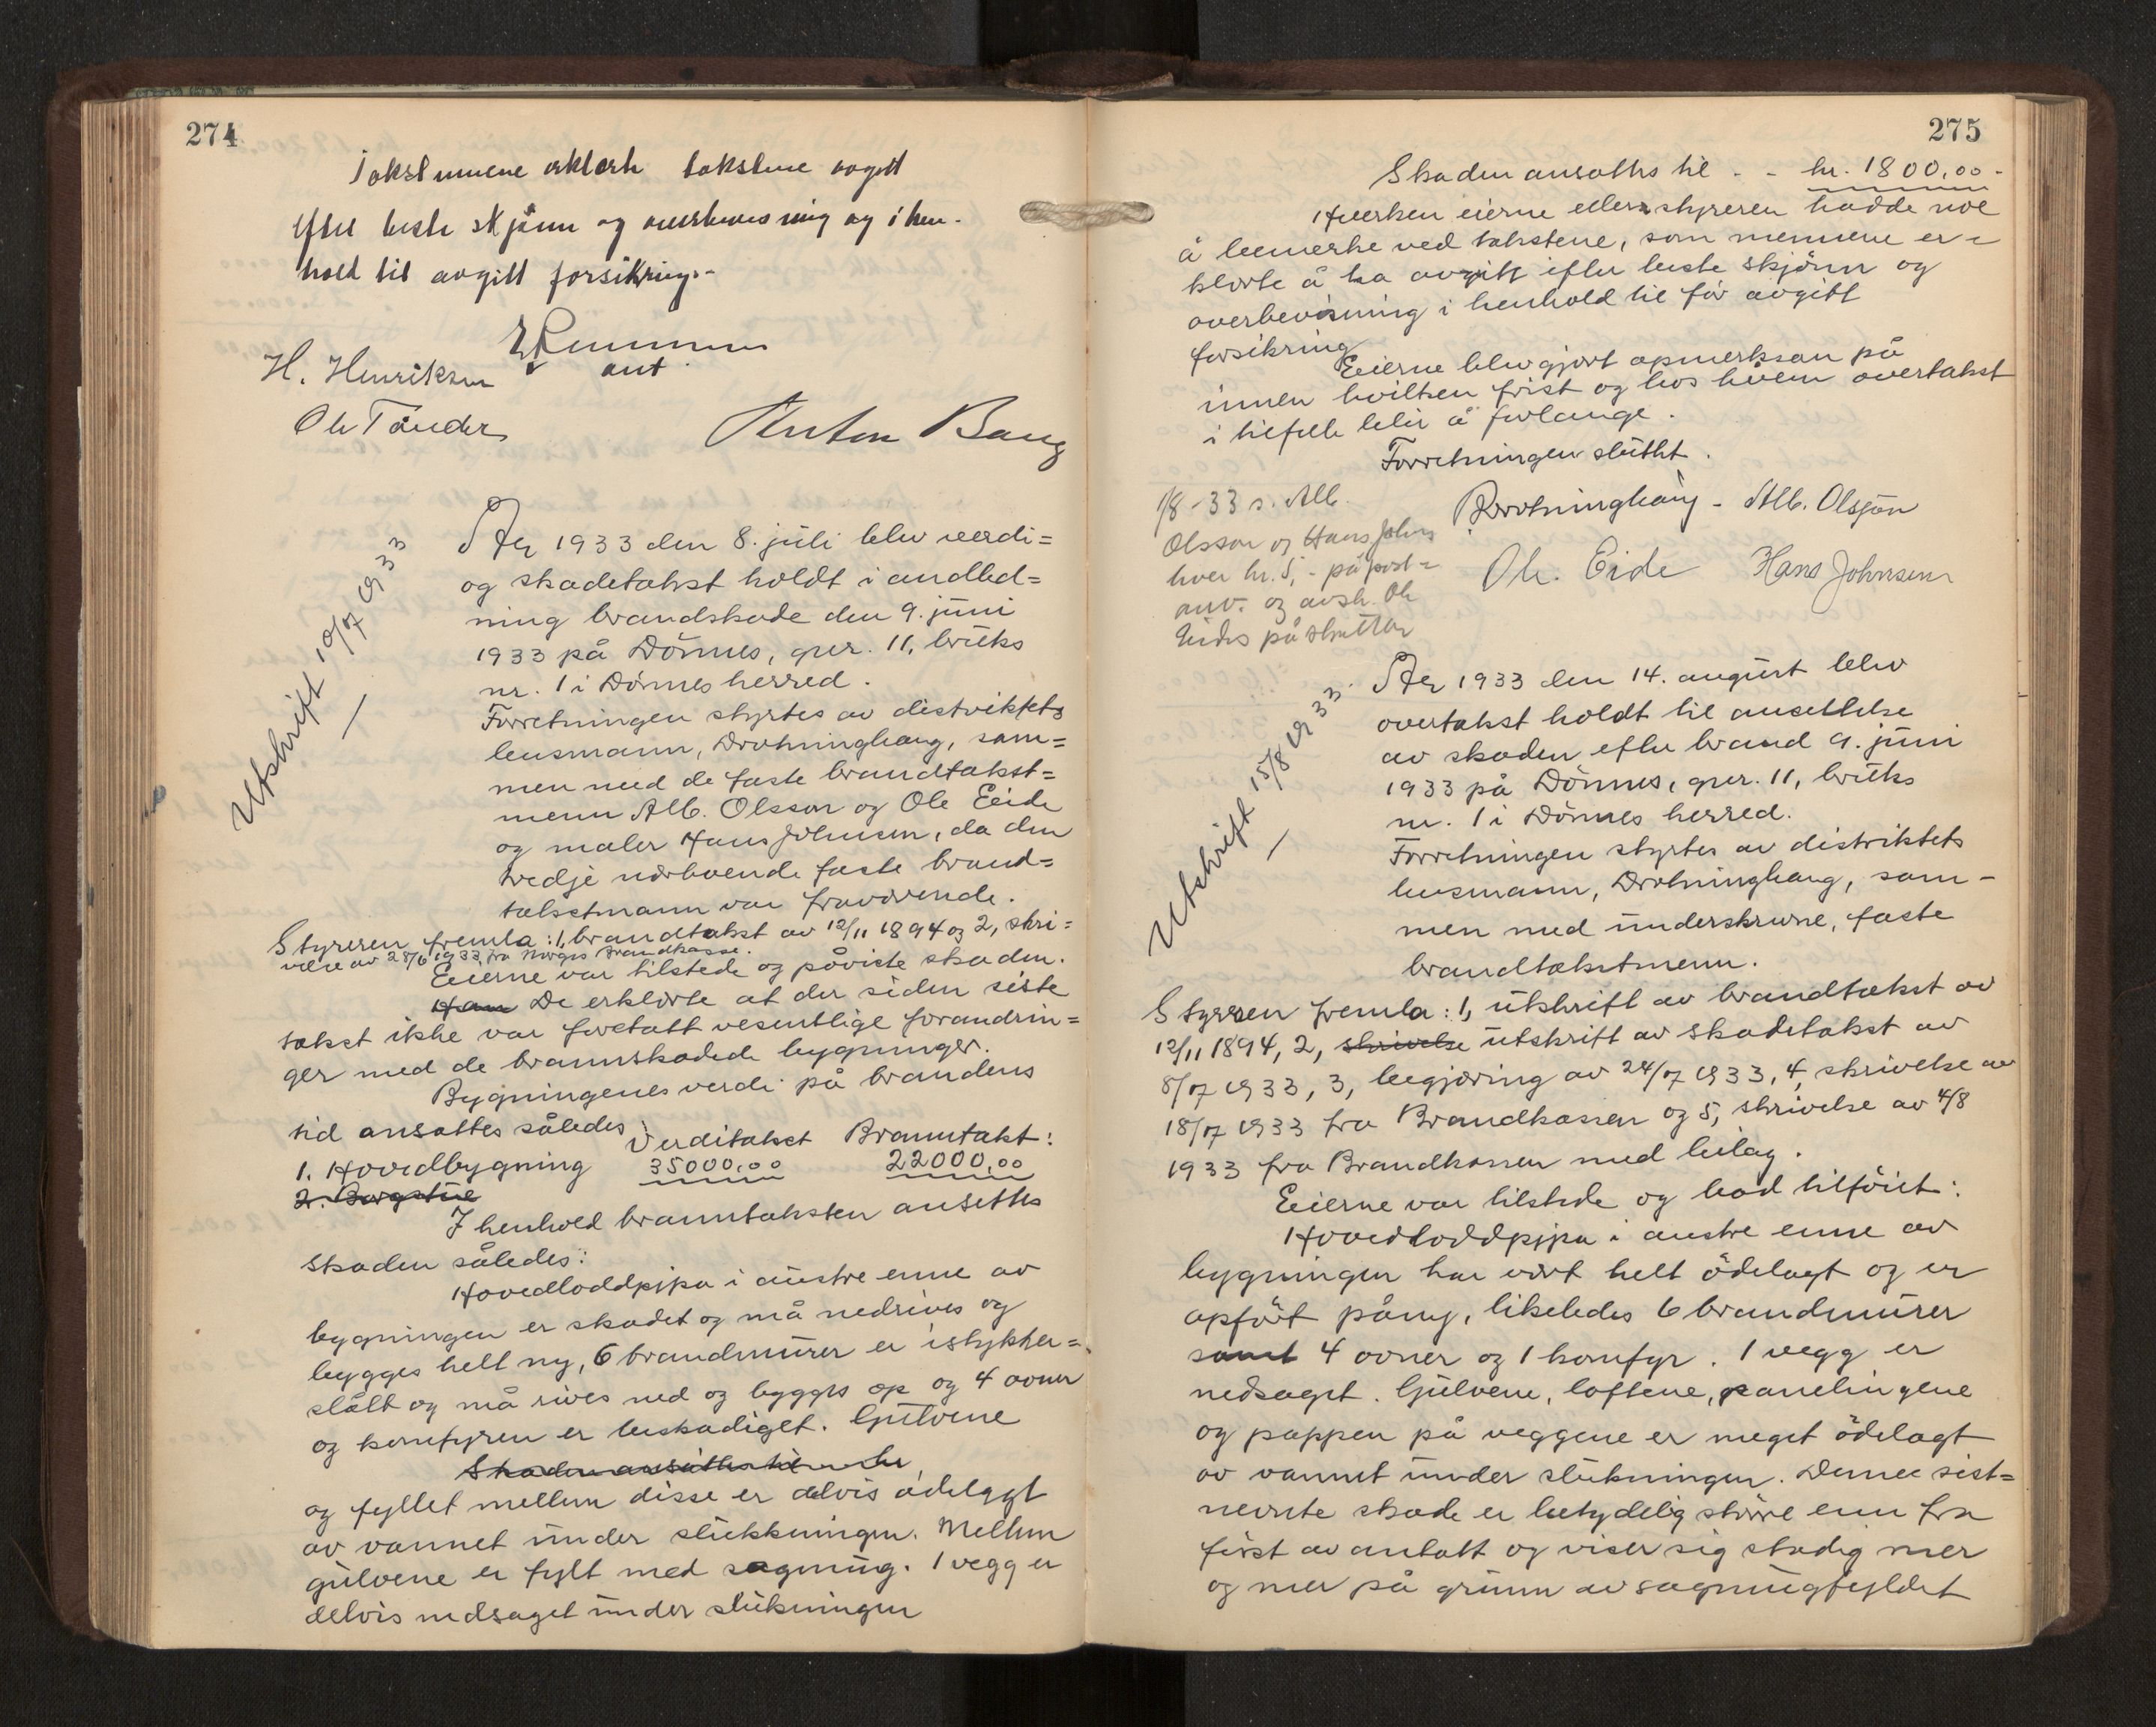 274
Takstmennene erklærte takstene avgitt
efter beste skjønn og overbevisning og i hen-
hold til avgitt forsikring.-
H. Henriksen
ant
Ole Tönder
Anton Bang
Utskrift 10/7 1933
År 1933 den 8. juli blev verdi=
og skadetakst holdt i andled=
ning brandskade den 9. juni
1933 på Dönnes, gnr. 11, bruks
nr. 1 i Dönnes herred.
Forretningen styrtes av distriktets
lensmann, Drotninghaug, sam=
men med de faste brandtakst=
menn Alb. Olsson og Ole Eide
og maler Hans Johnsen, da den
tredje nærboende faste brand=
takstmann var fraværende.
Styreren fremla: 1, brandtakst av 12/11 1894 og 2, skri=
velse av 28/6 1933 fra Norges Brandkasse.
Eierne var tilstede og påviste skaden.
Han De erklærte at der siden siste
takst ikke var foretatt vesentlige forandrin=
ger med de brannskadede bygninger.
Bygningenes verdi på brandens
tid ansattes således:
Verditakst Branntakst:
1. Hovedbygning 35000,00 22000,00
2. Borgstue
I henhold branntaksten ansettes
skaden således:
Hovedloddpipa i austre enne av
bygningen er skadet og må nedrives og
bygges helt ny, 6 brandmurer er istykker=
slått og må rives ned og bygges op og 4 ovner
og komfyren er beskadiget. Gulvene
Skaden ansettes til kr
og fyllet mellem disse er delvis ödelagt
av vannet under slukkningen. Mellem
gulvene er fylt med sagmug. 1 vegg er
delvis nedsaget under slukningen
275
Skaden ansattes til - - kr. 1800,00-
Hverken eierne eller styreren hadde noe
å bemerke ved takstene, som mennene er=
klærte å ha avgitt efter beste skjönn og
overbevisning i henhold til för avgitt
forsikring
Eierne blev gjort opmerksan på
innen hvilken frist og hos hvem overtakst
i tilfelle blir å forlange.
Forretningen sluttet.
1/8-33 s. Alb.
Olsson og Hans Johns
hver kr. 5,- på post=
anv. og avsk. Ole
Eides på skatten
Drotninghaug - Alb. Olsson
Ole. Eide Hans Johnsen
Utskrift 15/8 1933.
År 1933 den 14. august blev
overtakst holdt til ansettelse
av skaden efter brand 9. juni
1933 på Dönnes, gnr. 11, bruks
nr. 1 i Dönnes herred.
Forretningen styrtes av distriktets
lensmann, Drotninghaug, sam-
men med underskrevne, faste
brandtakstmenn.
Styreren fremla: 1, utskrift av brandtakst av
12/11 1894, 2, skrivelse utskrift av skadetakst av
8/7 1933, 3, begjæring av 24/7 1933, 4, skrivelse av
18/7 1933 fra Brandkassen og 5, skrivelse av 4/8
1933 fra Brandkassen med bilag.
Eierne var tilstede og bad tilföiet:
Hovedloddpipa i austre enne av
bygningen har vært helt ödelagt og er
opfört påny, likeledes 6 brandmurer
samt 4 ovner og 1 komfyr. 1 vegg er
nedsaget. Gulvene, loftene, panelingene
og pappen på veggene er meget ödelagt
av vannet under slukningen. Denne sist=
nevnte skade er betydelig större enn fra
först av antatt og viser sig stadig mer
og mer på grunn av sagmugfyldet